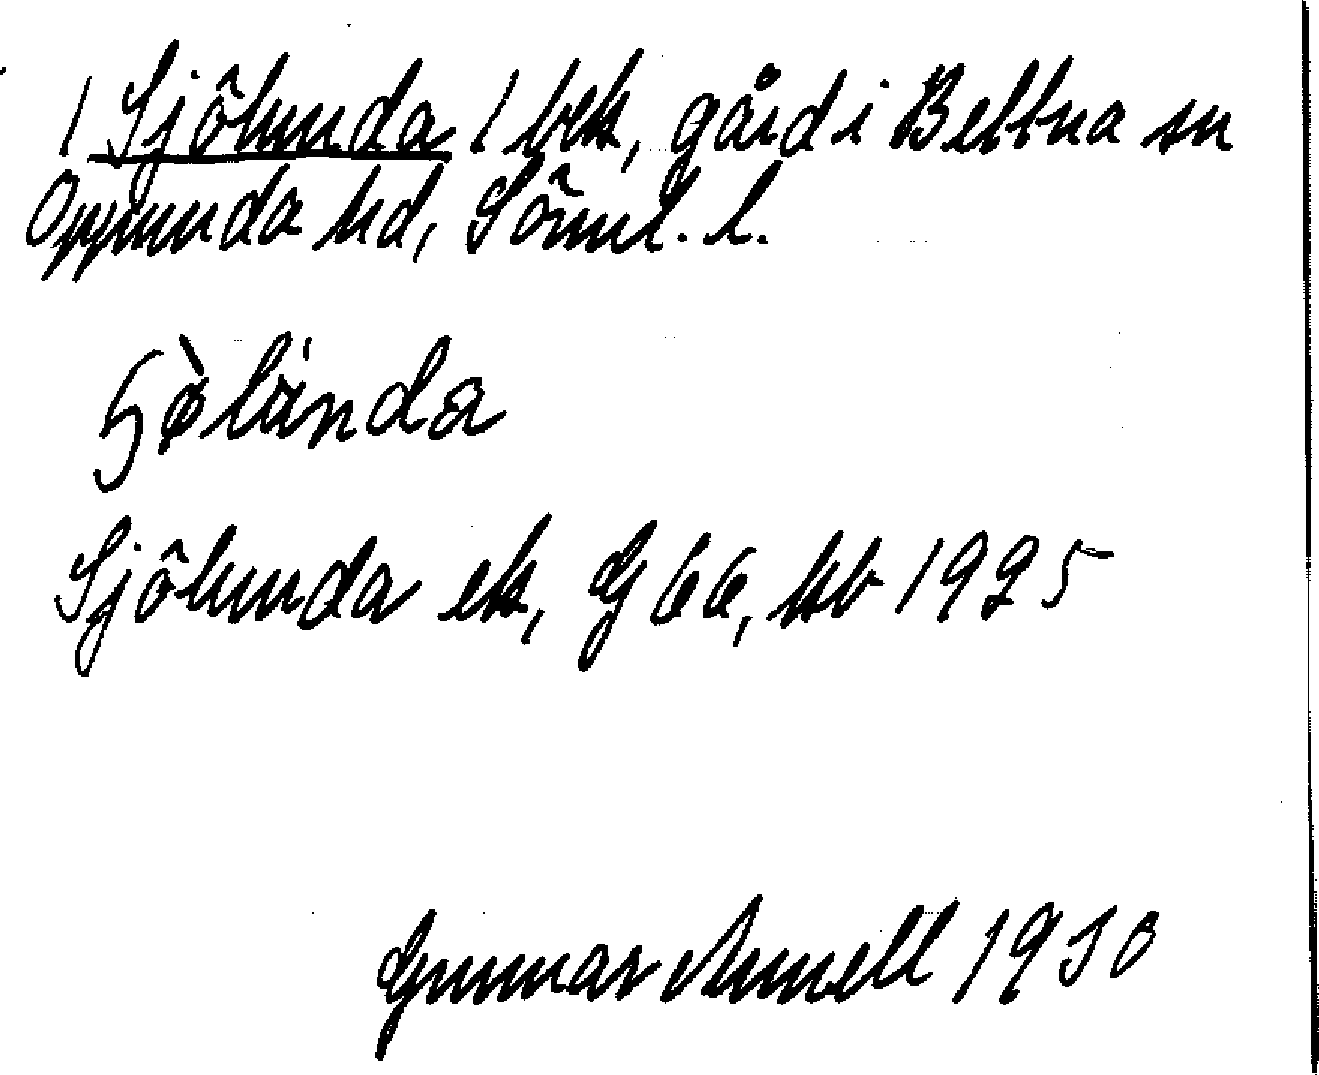 1 Sjölunda / bek, gård i Bettna sn
Oppunda hd, Söml. l.
Sjölunda ek, G 66, kb 1925
Gunnar Arnell 1930